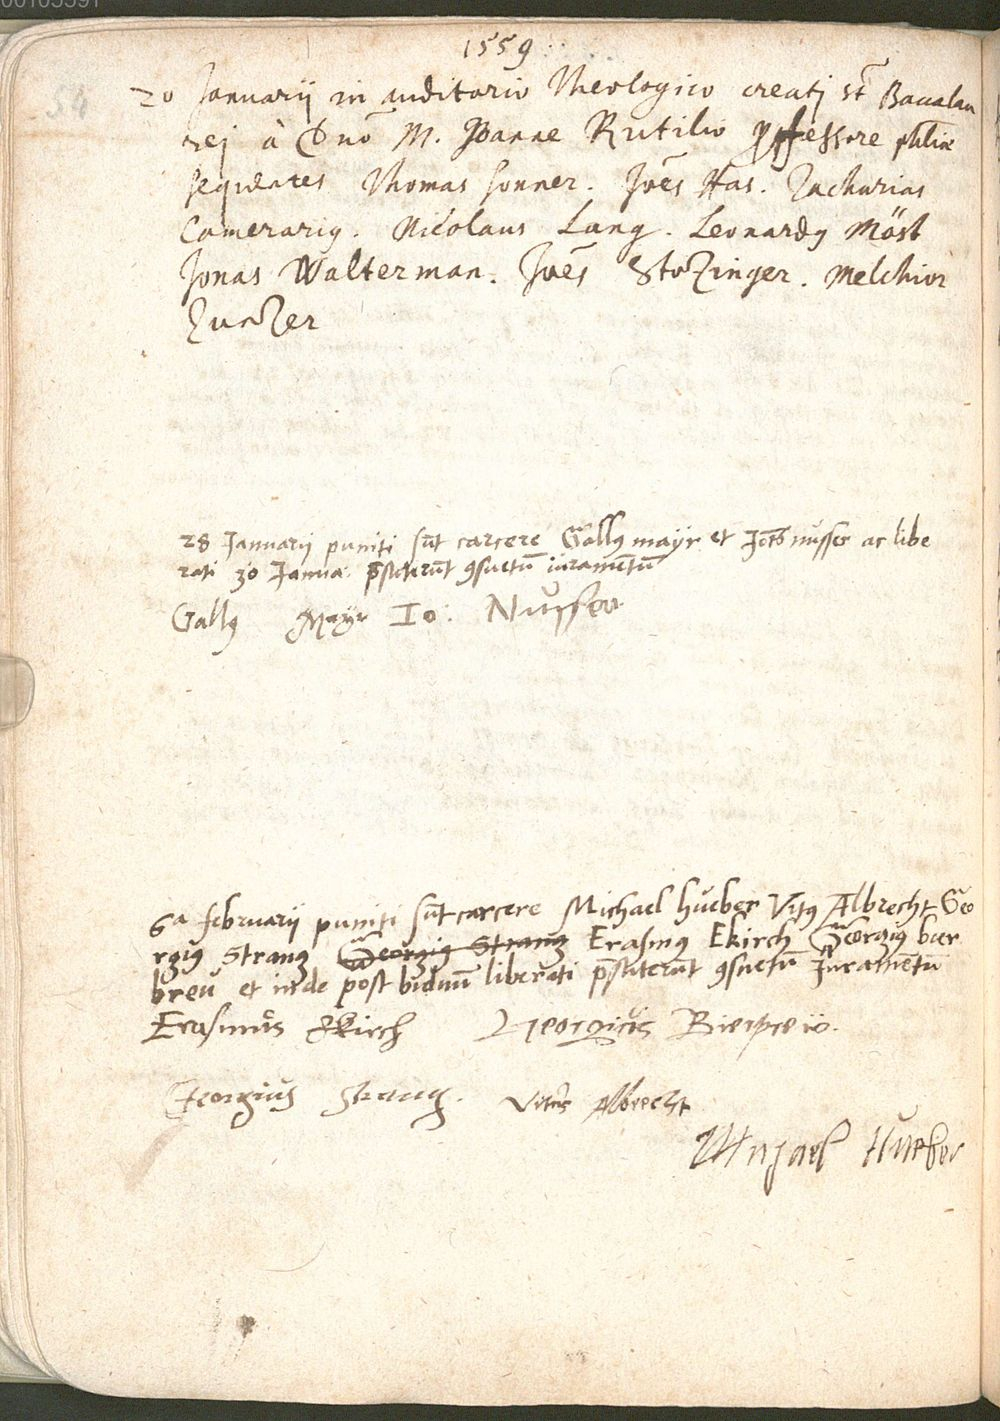 00105391
1559
54
20 Januarij in auditorio Theologico creatj st̃ Bacalau
rej à Dno M. Joanne Rutilio professore phliæ
sequentes Thomas sonner. Joẽs Has. Zacharias
Camerariꝰ. Nicolaus Lang. Leonardꝰ Möst
Jonas Walterman. Joẽs Stozinger. Melchior
28 Januarij puniti sũt carcere Gallꝰ mayr et Jo nusser ac libe
rati 30 Janua. p̃stiterũt ꝯsuetũ iuramentũ
Gallꝰ Mayr Io: Nusser
6a februarij puniti sũt carcere Michael hueber Vitꝰ Albrecht Geo
rgiꝰ Strang Georgiꝰ Strang Erasmꝰ Ekirch Georgiꝰ bier
breu et inde post biduũ liberati p̃stiterũt ꝯsuetũ Juramentũ
Erasmus Ekirch Georgius Bierpreu.
Georgius Strang. Vitus Albrecht
Michael Hueber